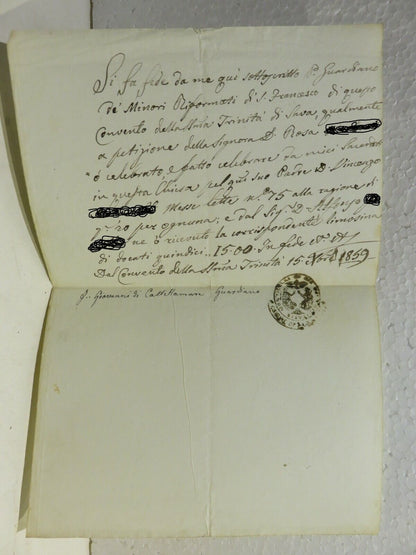 Si fa fede da me qui sottoscritto P. Guardiano
de' Minori Riformati di S. Francesco di questo
Convento della SSma Trinità di Sava, qualmente
a petizione della Signora D. Rosa
ò celebrato, e fatto celebrare da miei Sacerdoti
in questa Chiesa pel suo Padre D. Vincenzo
Messe lette n.° 75 alla ragione di
gr. 20 per ognuna; e dal Sig. D.
ne ò ricevuto la corrispondente limosina
di docati quindici.. 15.00. In fede
Dal Convento della SSma Trinità 15 1859
F. Giovanni di Castellamare Guardiano